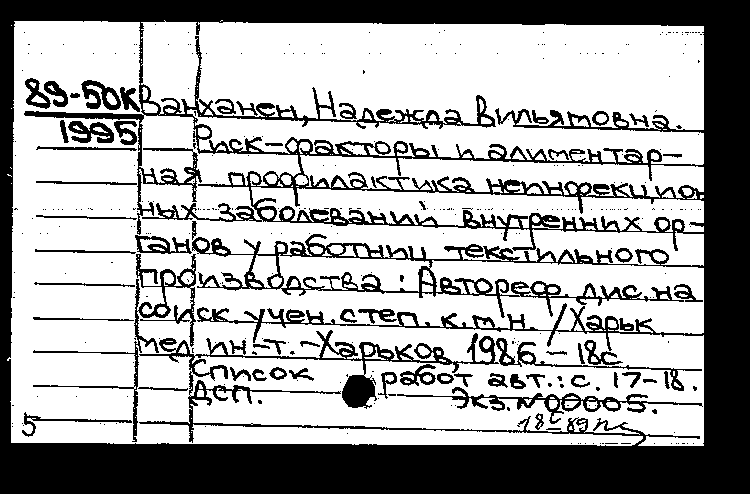 89-50К Ванханен, Надежда Вильямовна.
1995 Риск-факторы и алиментар-
ная профилактика неинфекцион
ных заболеваний внутренних ор-
ганов у работниц текстильного
производства : Автореф. дис. на
соиск. учен. степ. к.м.н. / Харьк.
мед. ин.-т. - Харьков, 1986. - 18с
Список работ авт.: с. 17-18.
ДСП. Экз. №00005.
5